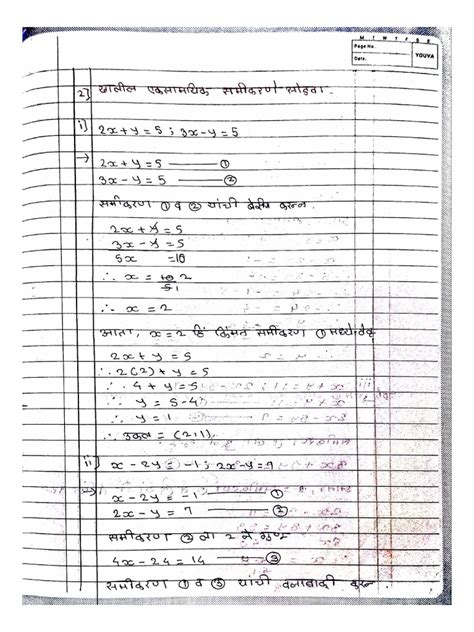 M T W T F S S
Page No.
Date.
YOUVA
2] खालील एकसामयिक समीकरण सोडवा.
i] 2x+y=5 ; 3x-y=5
→ 2x+y=5 ——— ①
3x-y=5 ——— ②
समीकरण ① व ② यांची बेरीज करून.
2x+y=5
3x-y=5
5x =10
∴ x = 10 2
5 1
∴ x = 2
आता, x=2 हि किंमत समीकरण ① मध्ये
2x+y=5
∴ 2(2)+y=5
∴ 4+y=5
∴ y = 5-4
∴ y = 1
∴ उकल = (2,1)
ii] x-2y=-1 ; 2x-y=7
→ x-2y=-1 ——— ①
2x-y=7 ——— ②
समीकरण ② ला 2 ने
4x-24=14 ——— ③
समीकरण ① व ③ यांची वजाबाकी